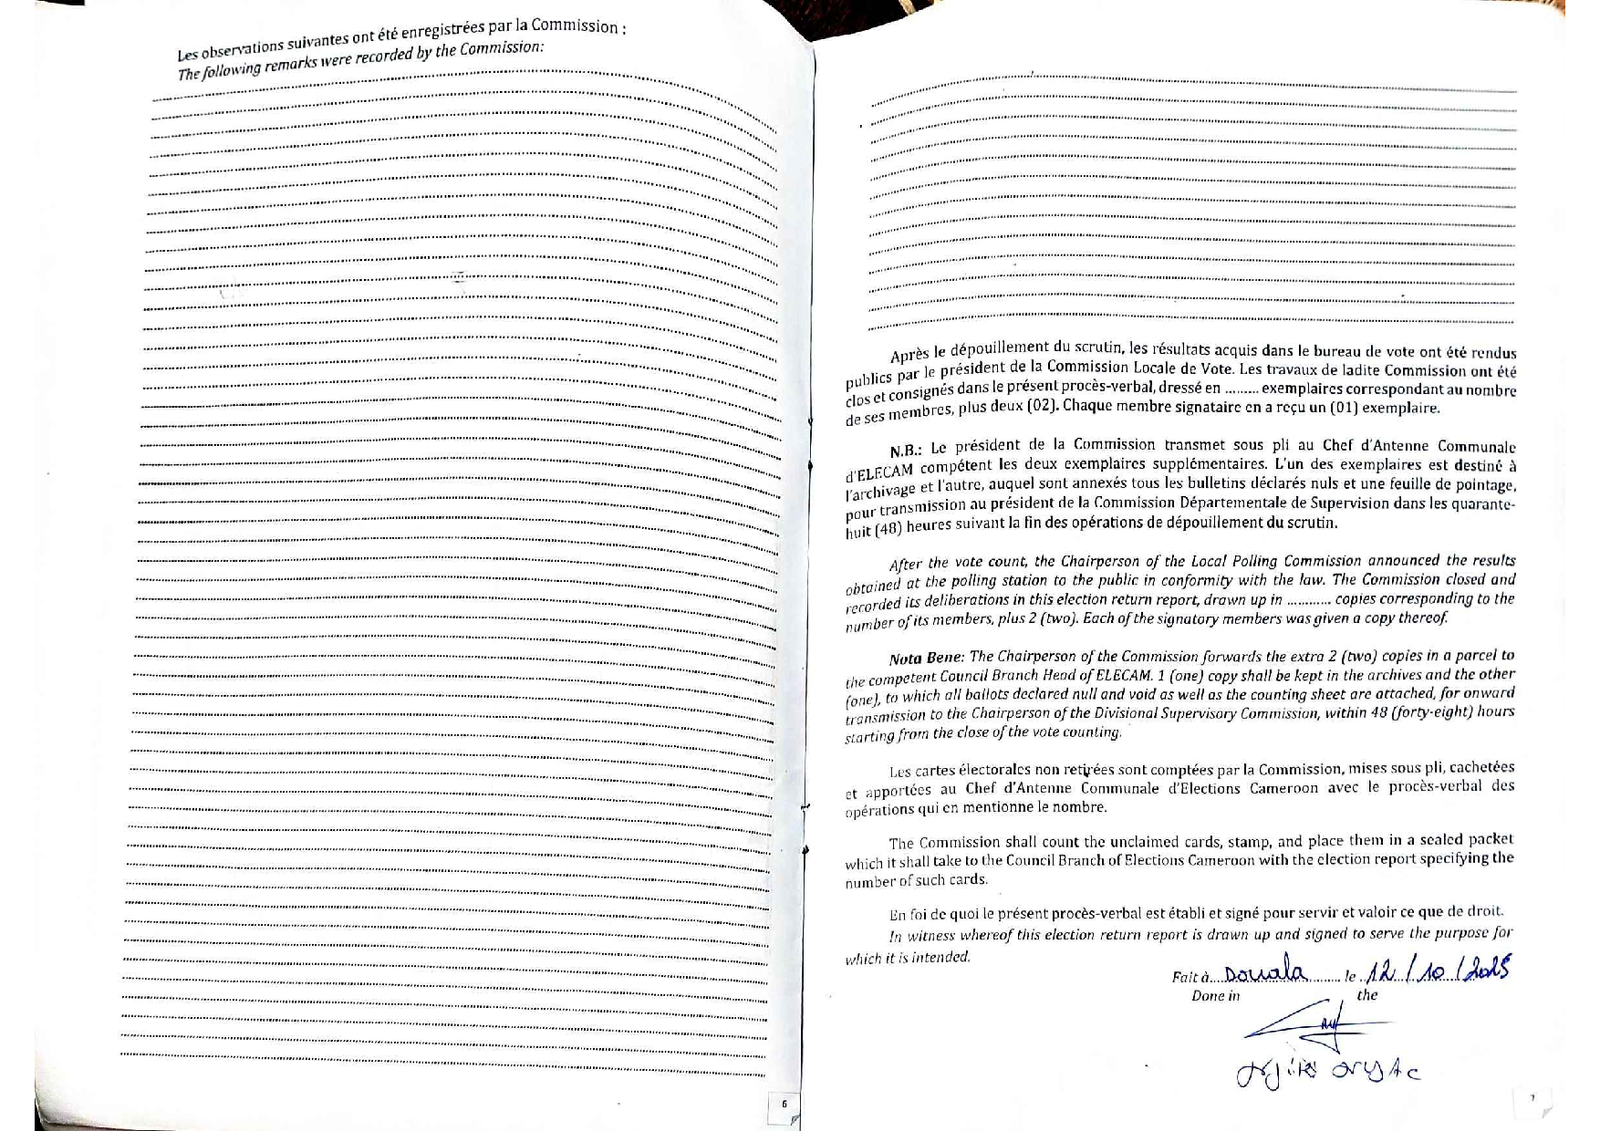 Les observations suivantes ont été enregistrées par la Commission :
The following remarks were recorded by the Commission:
6
Après le dépouillement du scrutin, les résultats acquis dans le bureau de vote ont été rendus
publics par le président de la Commission Locale de Vote. Les travaux de ladite Commission ont été
clos et consignés dans le présent procès-verbal, dressé en ......... exemplaires correspondant au nombre
de ses membres, plus deux (02). Chaque membre signataire en a reçu un (01) exemplaire.
N.B.: Le président de la Commission transmet sous pli au Chef d'Antenne Communale
d'ELECAM compétent les deux exemplaires supplémentaires. L'un des exemplaires est destiné à
l'archivage et l'autre, auquel sont annexés tous les bulletins déclarés nuls et une feuille de pointage,
pour transmission au président de la Commission Départementale de Supervision dans les quarante-
huit (48) heures suivant la fin des opérations de dépouillement du scrutin.
After the vote count, the Chairperson of the Local Polling Commission announced the results
obtained at the polling station to the public in conformity with the law. The Commission closed and
recorded its deliberations in this election return report, drawn up in ........... copies corresponding to the
number of its members, plus 2 (two). Each of the signatory members was given a copy thereof.
Nota Bene: The Chairperson of the Commission forwards the extra 2 (two) copies in a parcel to
the competent Council Branch Head of ELECAM. 1 (one) copy shall be kept in the archives and the other
(one), to which all ballots declared null and void as well as the counting sheet are attached, for onward
transmission to the Chairperson of the Divisional Supervisory Commission, within 48 (forty-eight) hours
starting from the close of the vote counting.
Les cartes électorales non retirées sont comptées par la Commission, mises sous pli, cachetées
et apportées au Chef d'Antenne Communale d'Elections Cameroon avec le procès-verbal des
opérations qui en mentionne le nombre.
The Commission shall count the unclaimed cards, stamp, and place them in a sealed packet
which it shall take to the Council Branch of Elections Cameroon with the election report specifying the
number of such cards.
En foi de quoi le présent procès-verbal est établi et signé pour servir et valoir ce que de droit.
In witness whereof this election return report is drawn up and signed to serve the purpose for
which it is intended.
Fait à....Douala........ le ..12../..10../2025
Done in the
7